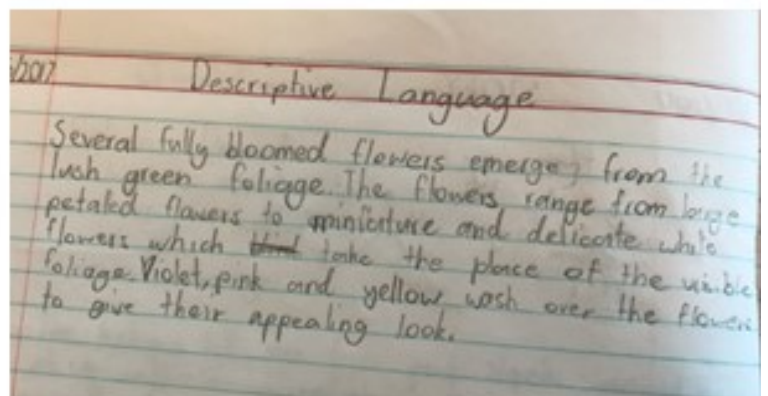 /2017
Descriptive Language
Several fully bloomed flowers emerge, from the
lush green foliage. The flowers range from large
petaled flowers to miniature and delicate while
flowers which take the place of the visible
foliage. Violet, pink and yellow wash over the flowers
to give their appealing look.